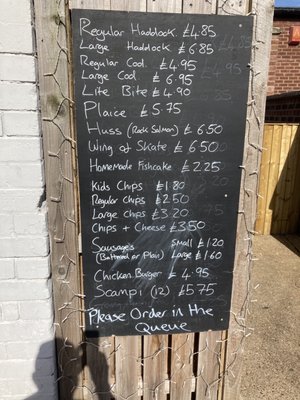 Regular Haddock £4.85
Large Haddock £6.85
Regular Cod. £4.95
Large Cod £6.95
Lite Bite £4.90
Plaice £5.75
Huss (Rock Salmon) £6.50
Wing of Skate £6.50
Homemade Fishcake £2.25
Kids Chips £1.80
Regular Chips £2.50
Large Chips £3.20
Chips + Cheese £3.50
Sausages Small £1.20
(Battered or Plain) Large £1.60
Chicken Burger £4.95
Scampi (12) £5.75
Please Order in the
Queue